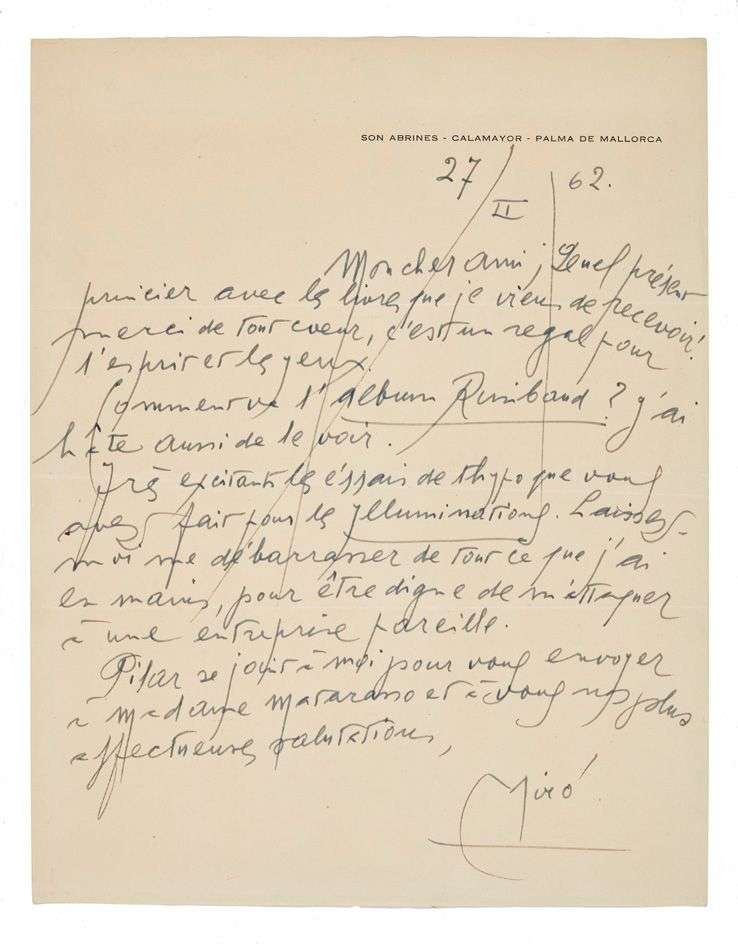 SON ABRINES - CALAMAYOR - PALMA DE MALLORCA
27/II 62.
Mon cher ami, Quel présent
princier avec les livres que je viens de recevoir!
merci de tout coeur, c'est un regal pour
l'esprit et les yeux.
Comment va l'album Rimbaud? j'ai
hâte aussi de le voir.
Très excitants les éssais de thypo que vous
avez fait pour les Illuminations. Laissez-
moi me débarrasser de tout ce que j'ai
en mains, pour être digne de m'attaquer
à une entreprise pareille.
Pilar se joint à moi pour vous envoyer
à madame Matarasso et à vous nos plus
affectueuses salutations,
Miró